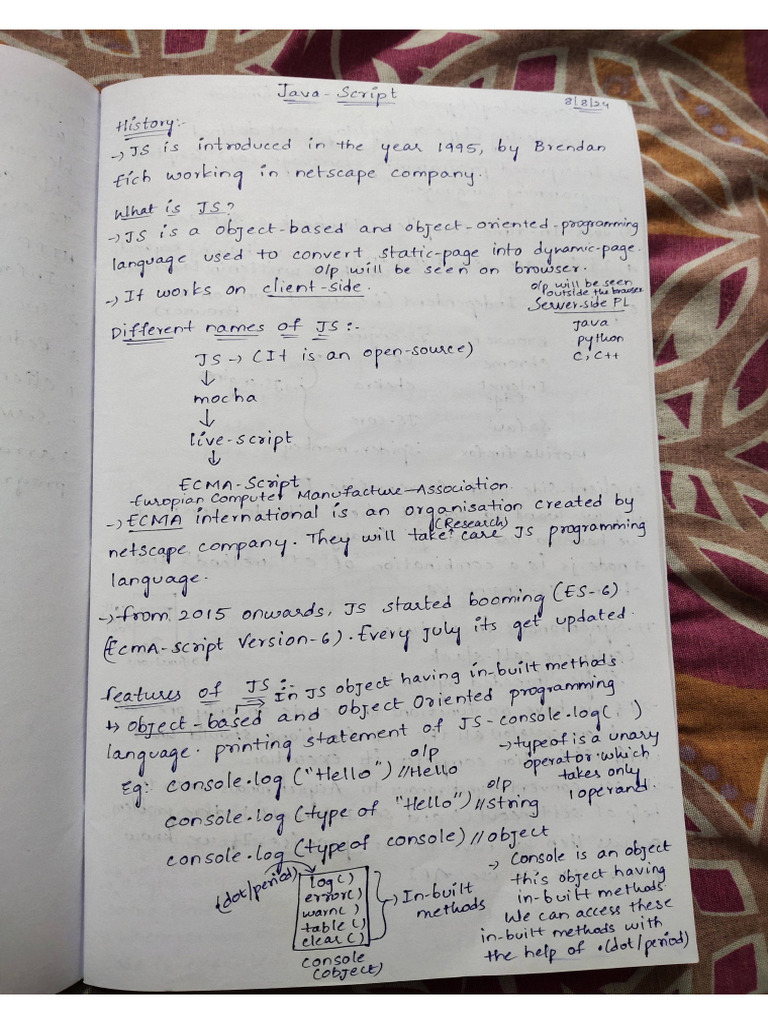 Java-Script
8/8/24
History:-
→ JS is introduced in the year 1995, by Brendan
Eich working in netscape company.
What is JS?
→ JS is a object-based and object-oriented-programming
language used to convert static-page into dynamic-page.
o/p will be seen on browser.
→ It works on client-side.
o/p will be seen
outside the browser
Server-side PL
Java
Python
C, C++
Different names of JS:-
JS → (It is an open-source)
↓
mocha
↓
live-script
↓
ECMA-Script
-Europian Computer Manufacture-Association.
→ ECMA international is an organisation created by
netscape company. They will take care JS programming
(Research)
language.
→ from 2015 onwards, JS started booming (ES-6)
(EcmA-Script Version-6). Every July its get updated.
features of JS:-
⇒ In JS object having in-built methods
↦ object-based and object Oriented programming
language. printing statement of JS-console.log( )
Eg: console.log ("Hello") //Hello
o/p
console.log (type of "Hello") //string
o/p
console.log (typeof console) //object
→ typeof is a unary
operator which
takes only
1 operand.
(dot/period)
log()
error()
warn()
table()
clear()
→ In-built
methods
console
(object)
→ Console is an object
this object having
in-built methods.
We can access these
in-built methods with
the help of .(dot/period)